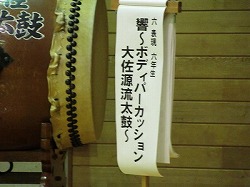 六 表現 六年生
響〜ボディパーカッション
大佐源流太鼓〜
太鼓